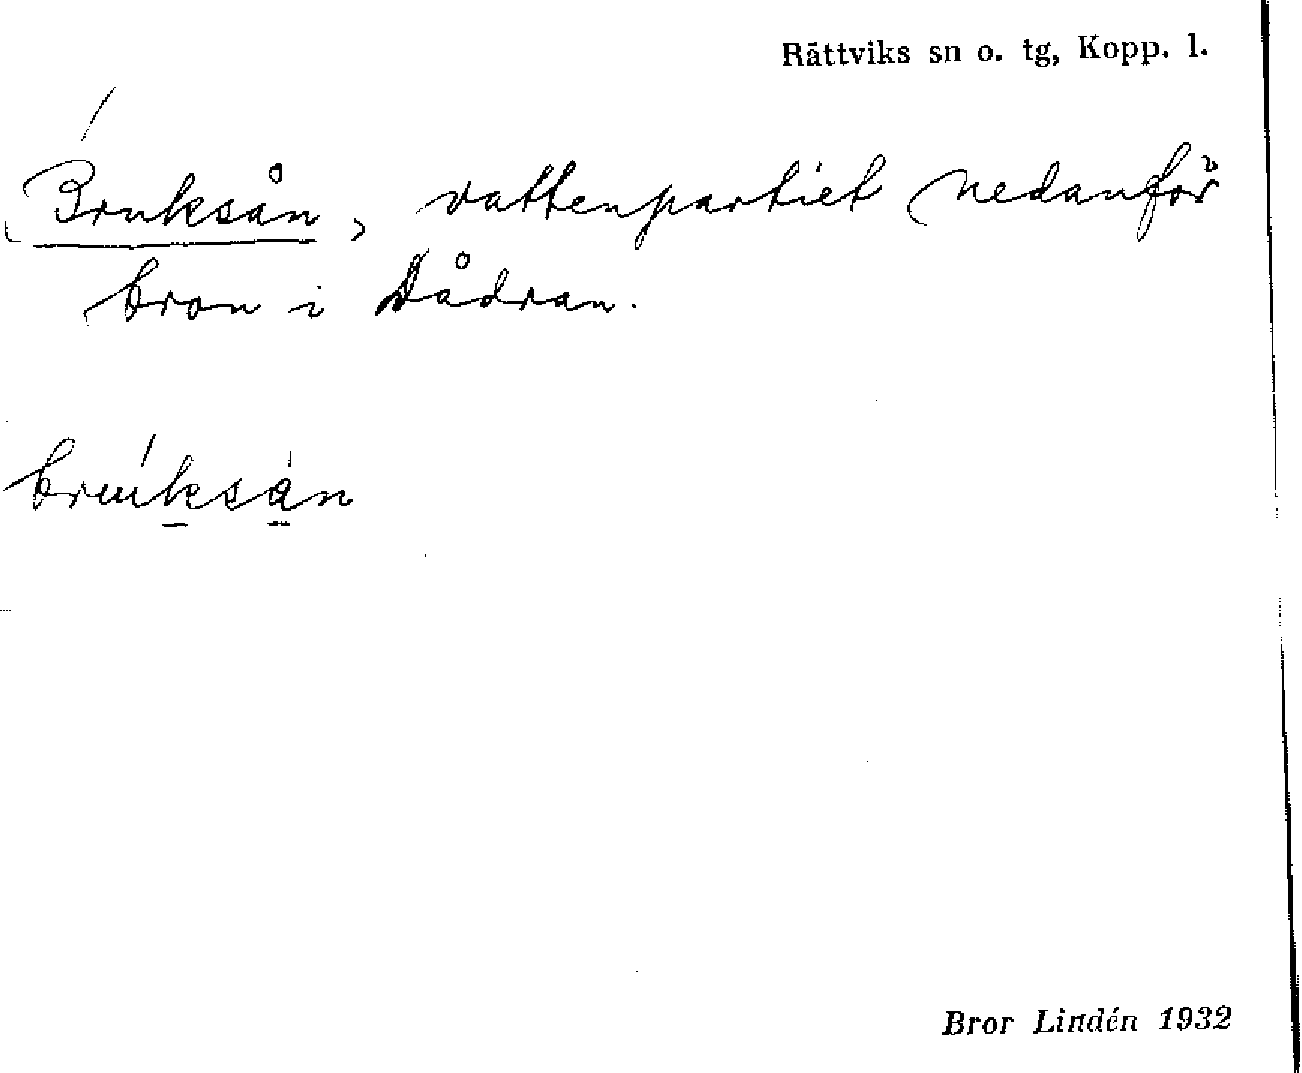 Rättviks sn o. tg, Kopp. l.
Bruksån, vattenpartiet nedanför
bron i Dådran.
bruksån
Bror Lindén 1932